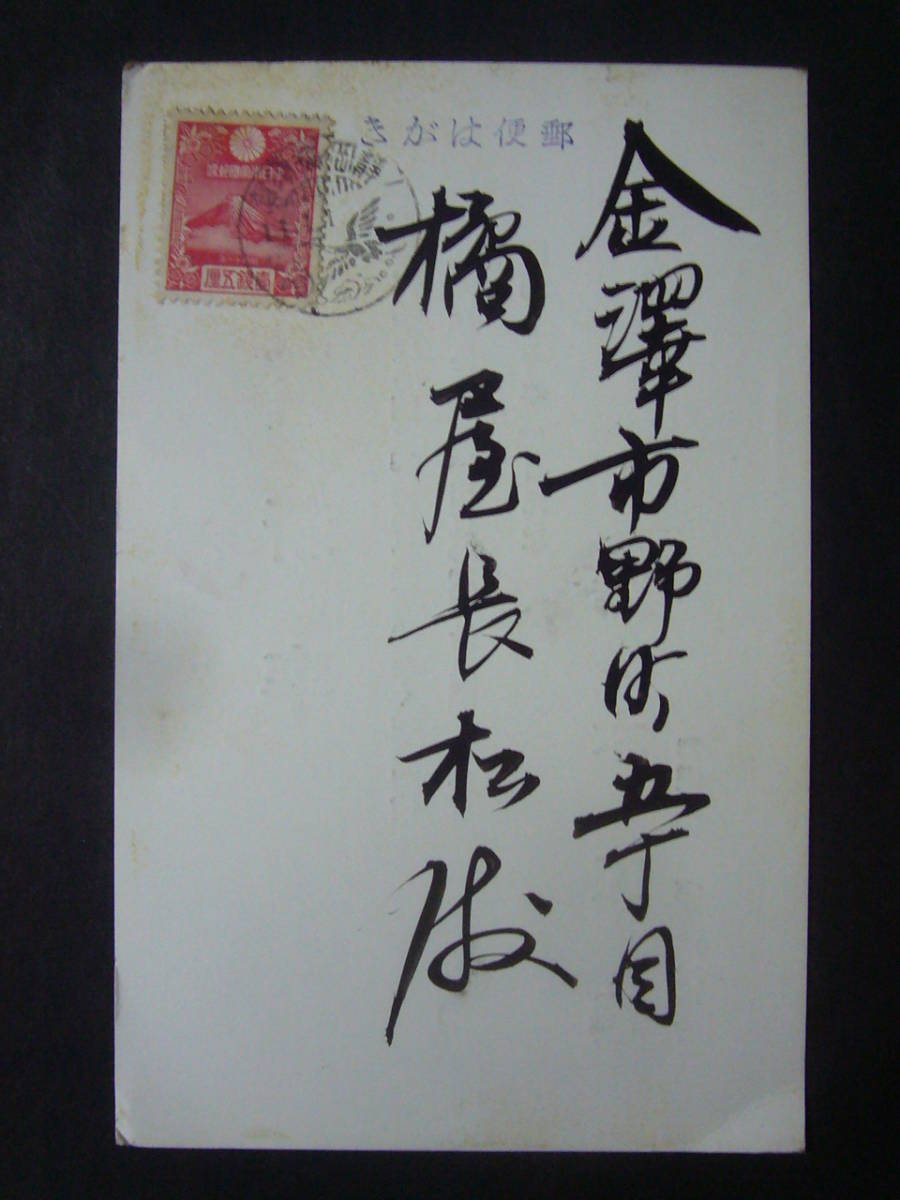 郵便はがき
金澤市野町五丁目
橘屋長松様
大日本帝国郵便
壹銭五厘